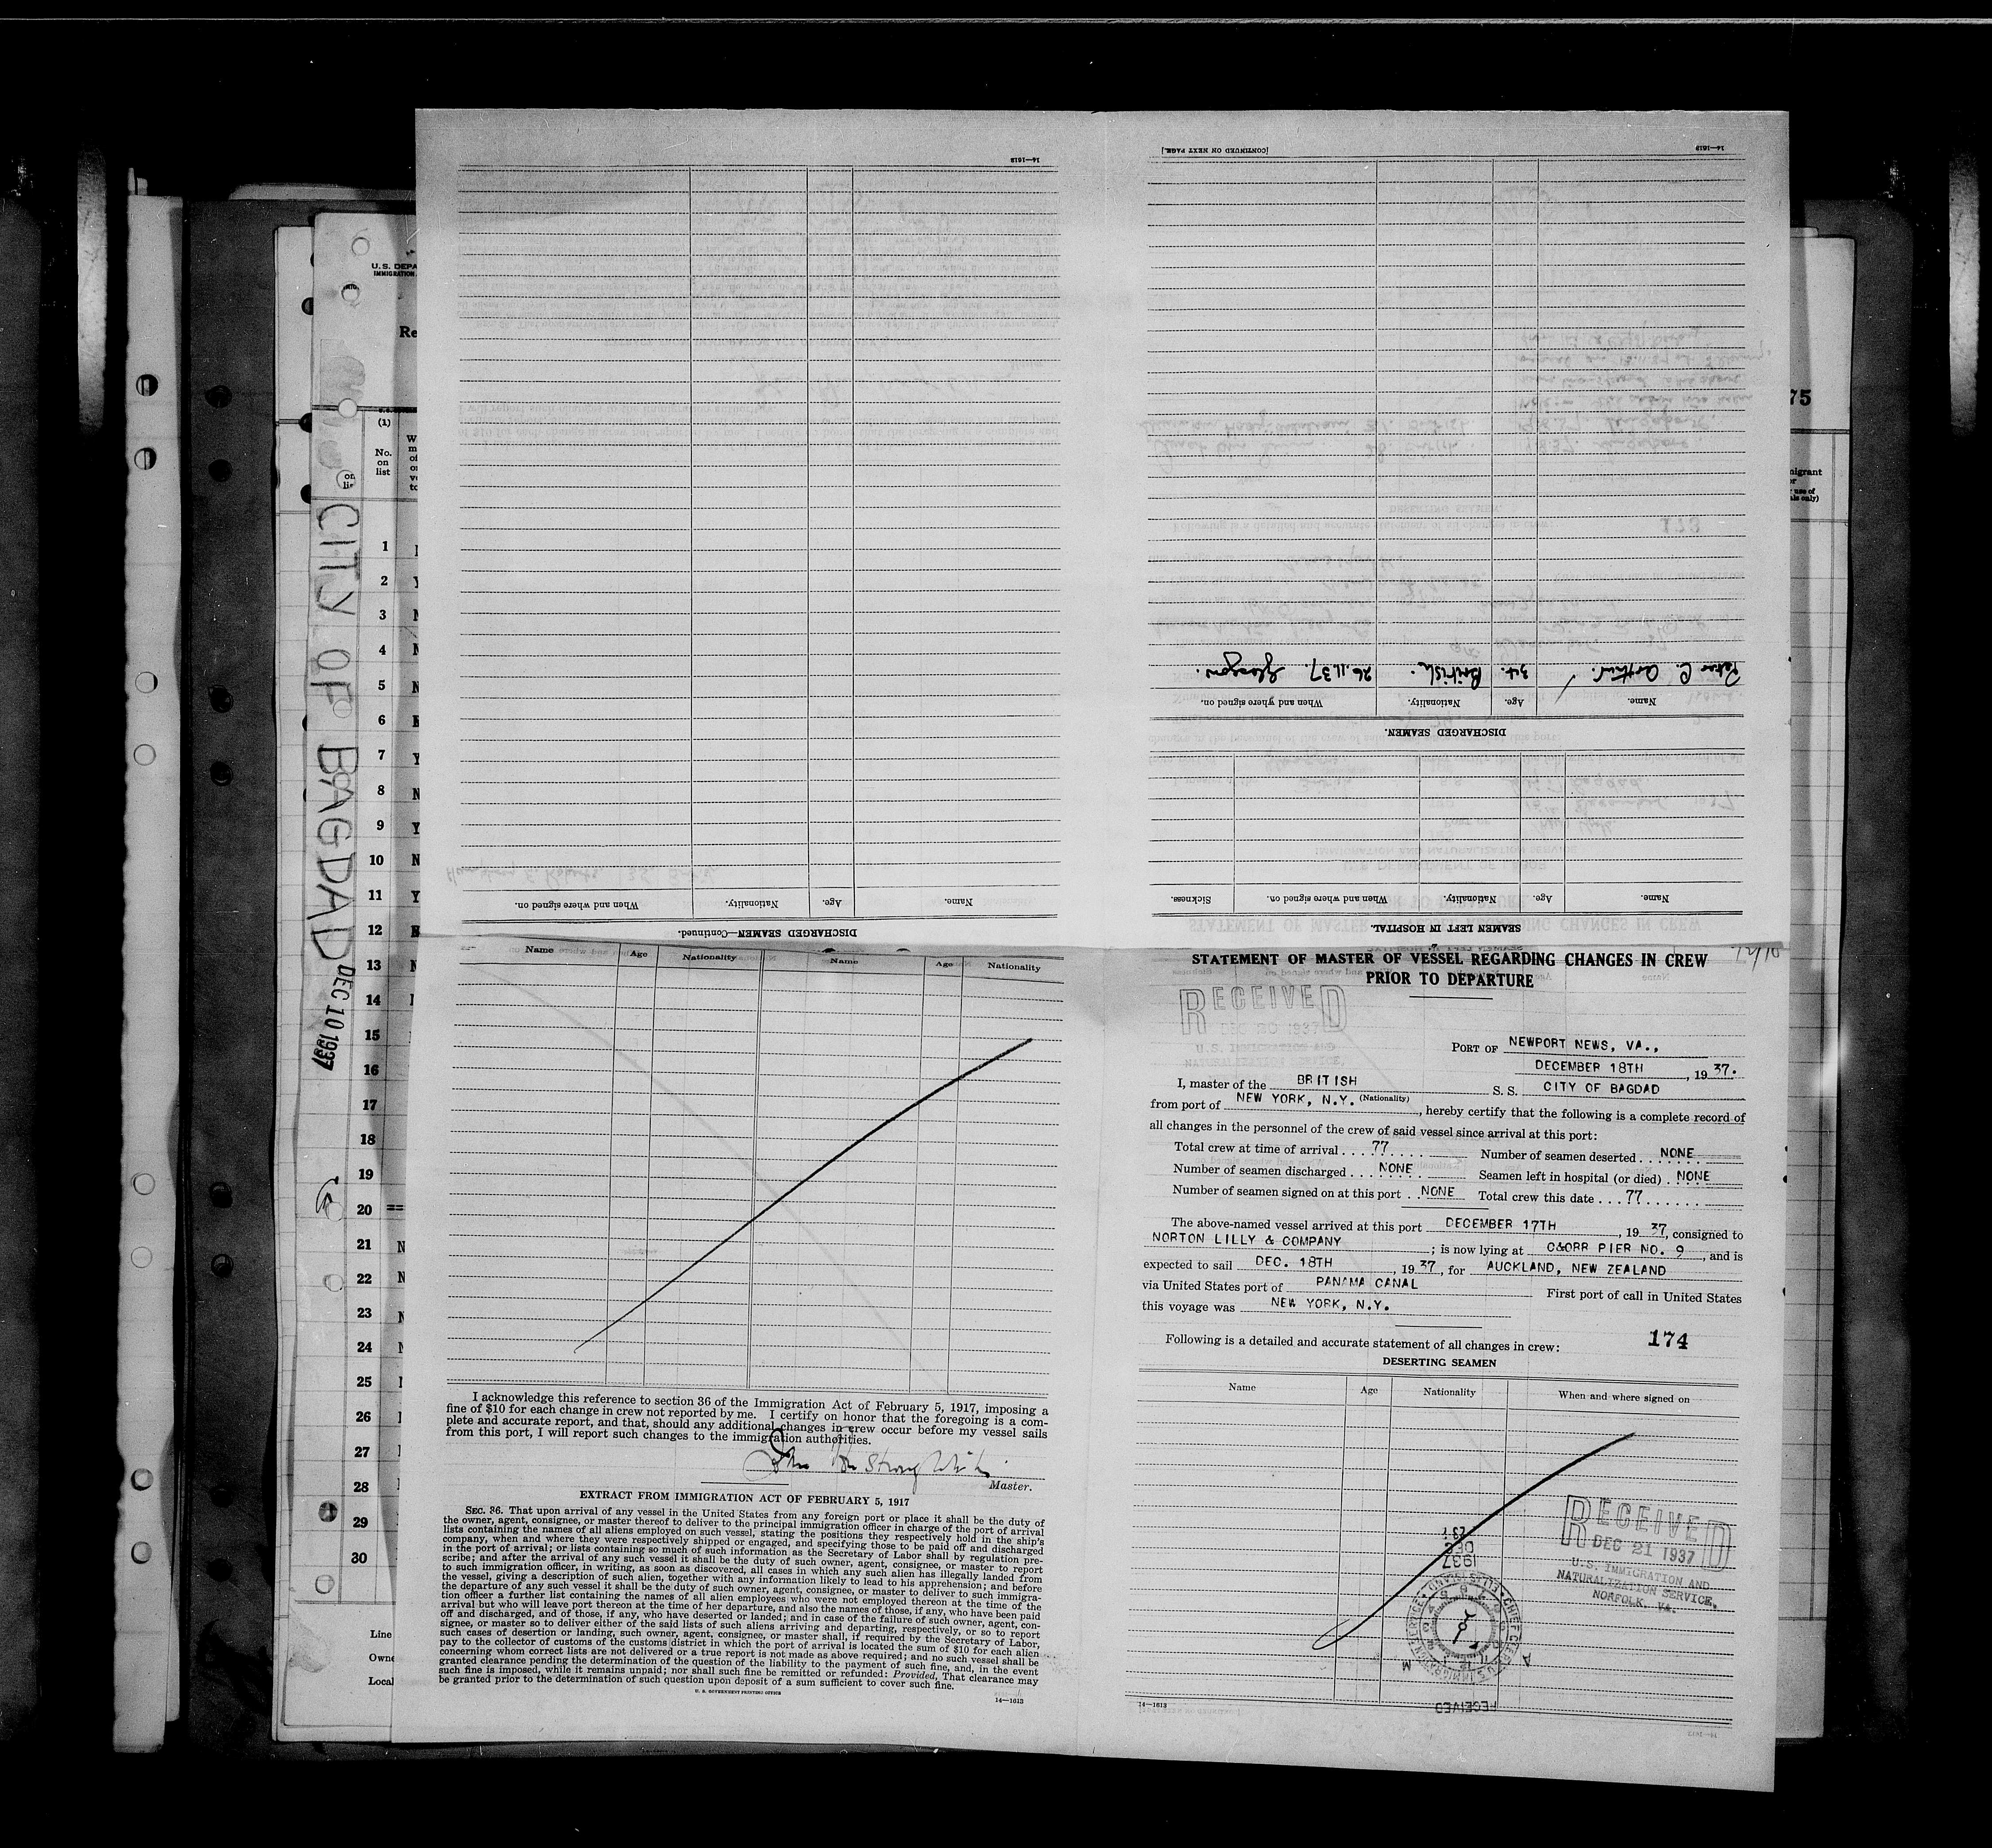 14—1613
[CONTINUED ON NEXT PAGE.]
14—1613
U. S. DEPA
IMMIGRATION
Re
(1)
No.
on
list
75
CITY OF BAGDAD DEC 10 1937
1
2
3
4
5
6
7
8
9
10
11
12
13
14
15
16
17
18
19
20
21
22
23
24
25
26
27
28
29
30
Line
Owne
Local
DISCHARGED SEAMEN—Continued.
Name. Age. Nationality. When and where signed on.
SEAMEN LEFT IN HOSPITAL.
Name. Age. Nationality. When and where signed on. Sickness.
DISCHARGED SEAMEN.
Name. Age. Nationality. When and where signed on.
Peter C. Arthur. 34. British. 26.11.37. Glasgow.
Name Age Nationality Name Age Nationality
I acknowledge this reference to section 36 of the Immigration Act of February 5, 1917, imposing a
fine of $10 for each change in crew not reported by me. I certify on honor that the foregoing is a com-
plete and accurate report, and that, should any additional changes in crew occur before my vessel sails
from this port, I will report such changes to the immigration authorities.
Master.
EXTRACT FROM IMMIGRATION ACT OF FEBRUARY 5, 1917
SEC. 36. That upon arrival of any vessel in the United States from any foreign port or place it shall be the duty of
the owner, agent, consignee, or master thereof to deliver to the principal immigration officer in charge of the port of arrival
lists containing the names of all aliens employed on such vessel, stating the positions they respectively hold in the ship's
company, when and where they were respectively shipped or engaged, and specifying those to be paid off and discharged
in the port of arrival; or lists containing so much of such information as the Secretary of Labor shall by regulation pre-
scribe; and after the arrival of any such vessel it shall be the duty of such owner, agent, consignee, or master to report
to such immigration officer, in writing, as soon as discovered, all cases in which any such alien has illegally landed from
the vessel, giving a description of such alien, together with any information likely to lead to his apprehension; and before
the departure of any such vessel it shall be the duty of such owner, agent, consignee, or master to deliver to such immigra-
tion officer a further list containing the names of all alien employees who were not employed thereon at the time of the
arrival but who will leave port thereon at the time of her departure, and also the names of those, if any, who have been paid
off and discharged, and of those, if any, who have deserted or landed; and in case of the failure of such owner, agent, con-
signee, or master so to deliver either of the said lists of such aliens arriving and departing, respectively, or so to report
such cases of desertion or landing, such owner, agent, consignee, or master shall, if required by the Secretary of Labor,
pay to the collector of customs of the customs district in which the port of arrival is located the sum of $10 for each alien
concerning whom correct lists are not delivered or a true report is not made as above required; and no such vessel shall be
granted clearance pending the determination of the question of the liability to the payment of such fine, and, in the event
such fine is imposed, while it remains unpaid; nor shall such fine be remitted or refunded: Provided, That clearance may
be granted prior to the determination of such question upon deposit of a sum sufficient to cover such fine.
U. S. GOVERNMENT PRINTING OFFICE 14—1613
STATEMENT OF MASTER OF VESSEL REGARDING CHANGES IN CREW
PRIOR TO DEPARTURE
RECEIVED
DEC 20 1937
U. S. IMMIGRATION AND
NATURALIZATION SERVICE,
PORT OF NEWPORT NEWS, VA.,
DECEMBER 18TH, 1937.
I, master of the BRITISH S. S. CITY OF BAGDAD
(Nationality)
from port of NEW YORK, N.Y., hereby certify that the following is a complete record of
all changes in the personnel of the crew of said vessel since arrival at this port:
Total crew at time of arrival . . . 77 . . . . Number of seamen deserted . . NONE
Number of seamen discharged . . . NONE Seamen left in hospital (or died) . NONE
Number of seamen signed on at this port . . NONE Total crew this date . . . 77 . . . . . .
The above-named vessel arrived at this port DECEMBER 17TH, 1937, consigned to
NORTON LILLY & COMPANY; is now lying at C&ORR PIER NO. 9, and is
expected to sail DEC. 18TH, 1937, for AUCKLAND, NEW ZEALAND
via United States port of PANAMA CANAL First port of call in United States
this voyage was NEW YORK, N.Y.
Following is a detailed and accurate statement of all changes in crew: 174
DESERTING SEAMEN
Name Age Nationality When and where signed on
RECEIVED
DEC 21 1937
U. S. IMMIGRATION AND
NATURALIZATION SERVICE,
NORFOLK, VA.
RECEIVED
1937
DEC
14—1613